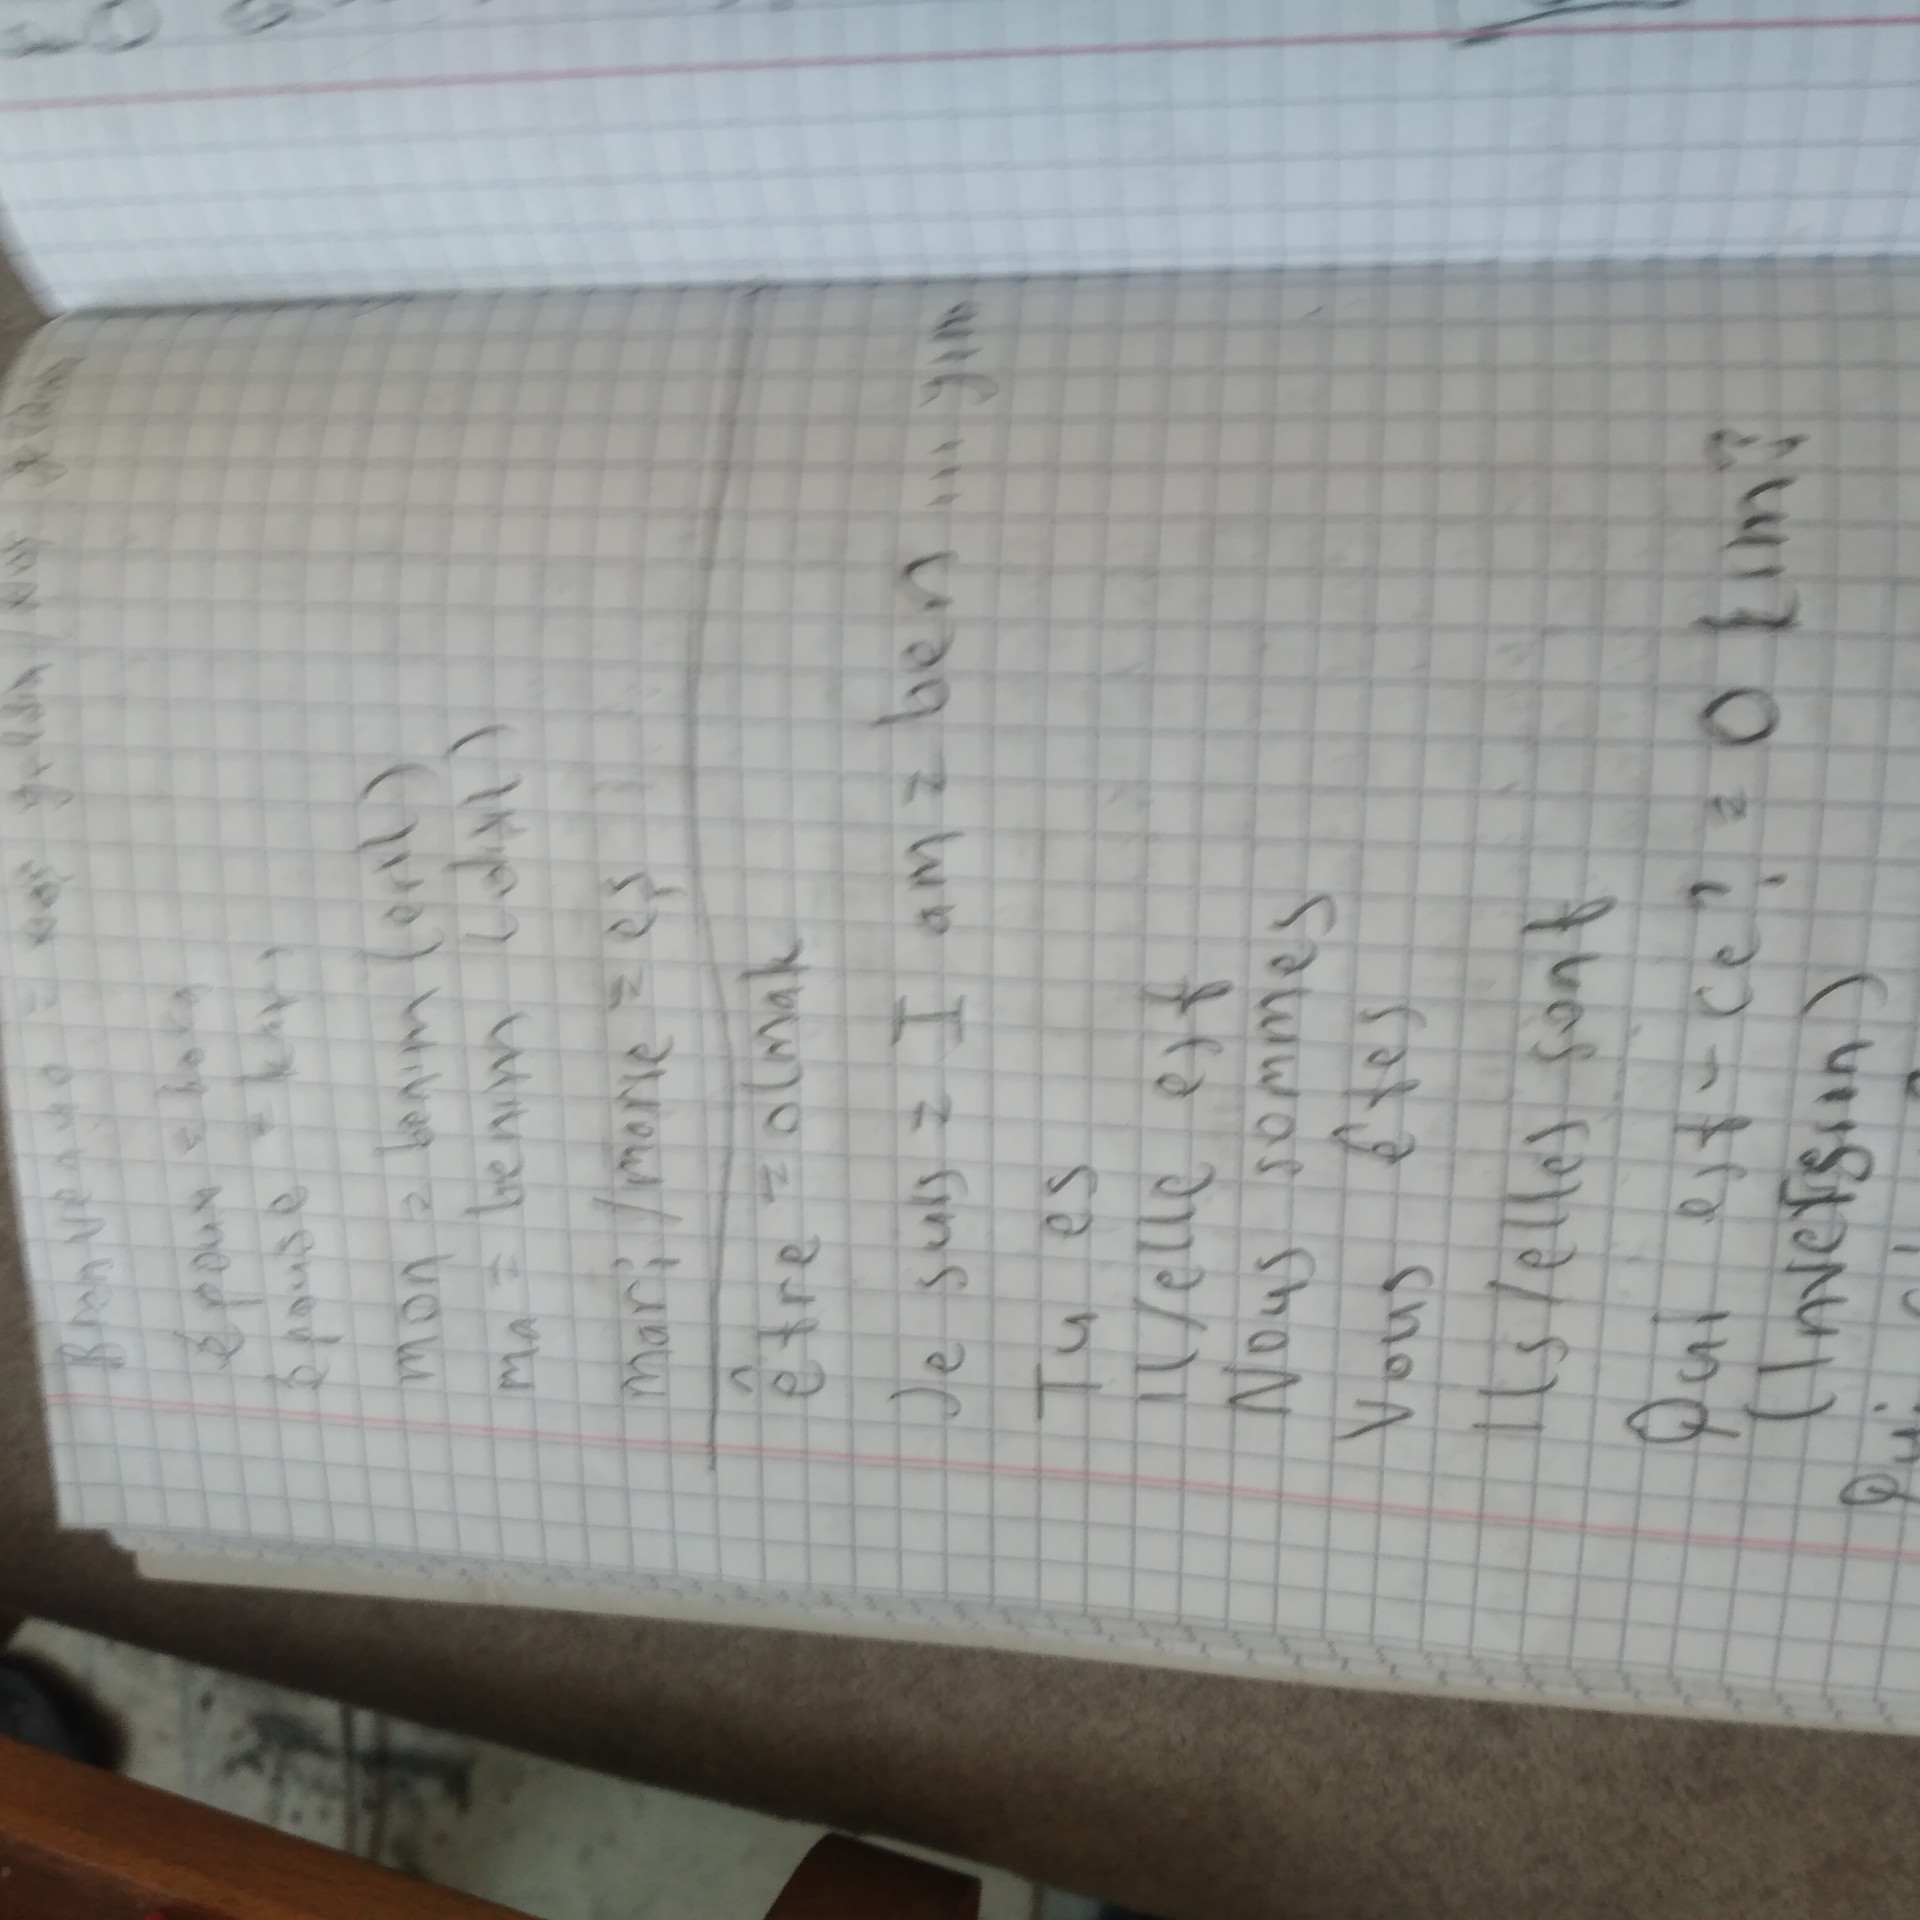 Bienvenue = hoş geldin / hoş geldiniz
époux = koca
épouse = karı
mon = benim (eril)
ma = benim (dişil)
mari / marie = eş
être = olmak
Je suis = I am = ben ... yım
Tu es
Il/elle est
Nous sommes
Vous êtes
Ils/elles sont
Qui est-ce? = O kim?
(Inversin)
Qui